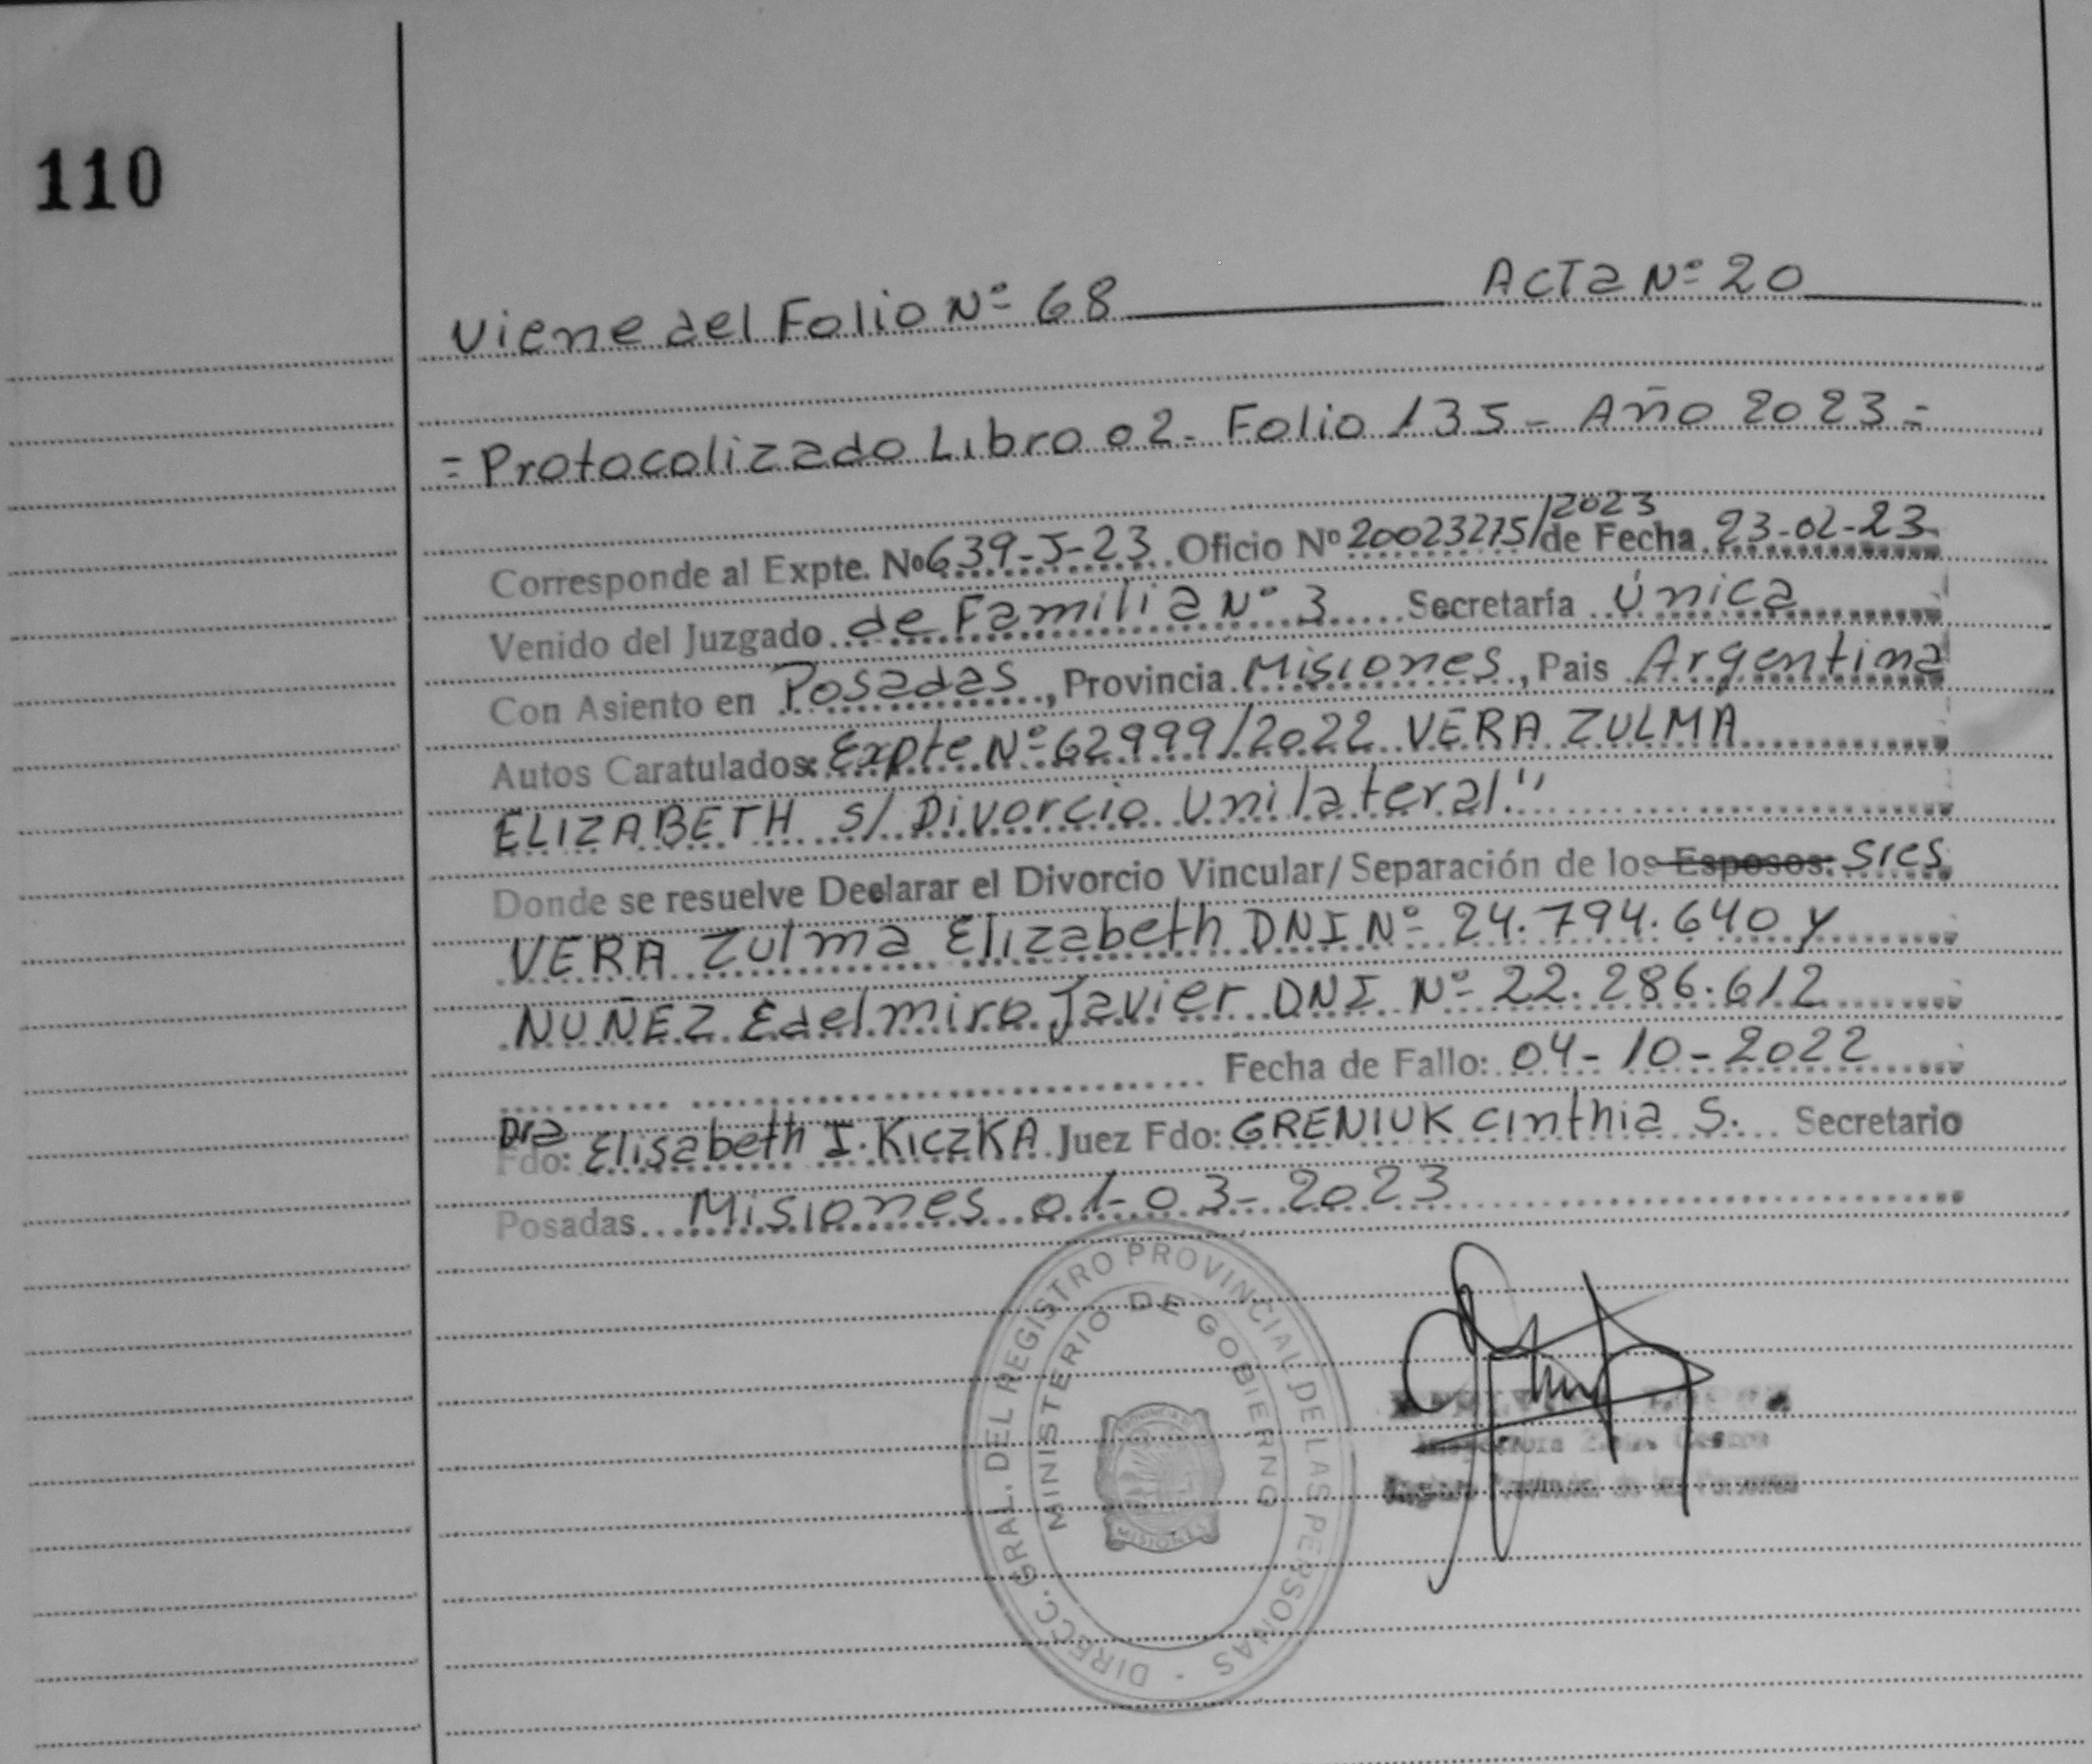 110
Viene del Folio Nº 68 Acta Nº 20
= Protocolizado Libro 02 - Folio 135 - Año 2023 =
Corresponde al Expte. Nº 639-J-23 Oficio Nº 20023215/2023 de Fecha 23-02-23
Venido del Juzgado de Familia Nº 3 Secretaría Única
Con Asiento en Posadas, Provincia Misiones, Pais Argentina
Autos Caratulados: Expte Nº 62999/2022 VERA ZULMA
ELIZABETH S/ Divorcio Unilateral."
Donde se resuelve Declarar el Divorcio Vincular/ Separación de los Esposos: sres
VERA Zulma Elizabeth DNI Nº 24.794.640 y
NUÑEZ Edelmiro Javier DNI Nº 22.286.612
Fecha de Fallo: 04-10-2022
Dra
Fdo: Elisabeth I. KiczKA Juez Fdo: GRENIUK Cinthia S. Secretario
Posadas Misiones 01-03-2023
DIRECC. GRAL. DEL REGISTRO PROVINCIAL DE LAS PERSONAS -
MINISTERIO DE GOBIERNO
MISIONES
Provincial de las Personas